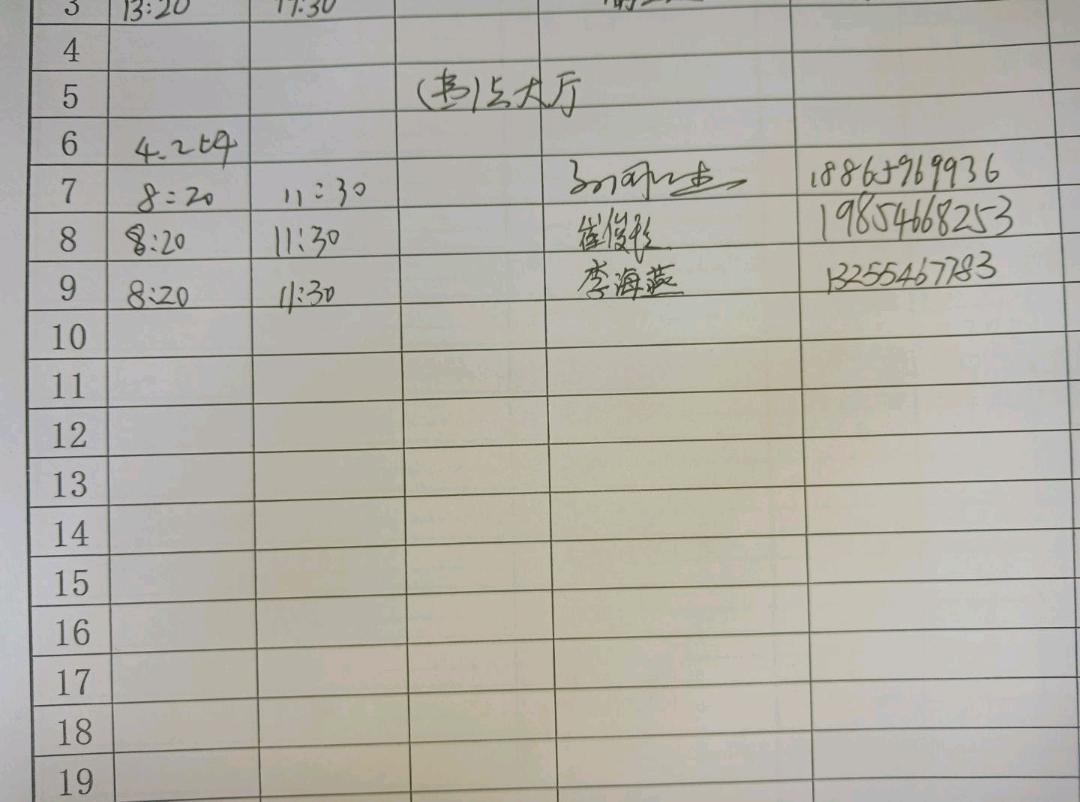 3 13:20 17:30
4
5 大厅
6 4.2
7 8:20 11:30 18865969936
8 8:20 11:30 崔俊 19854668253
9 8:20 11:30 李海燕 13255467783
10
11
12
13
14
15
16
17
18
19